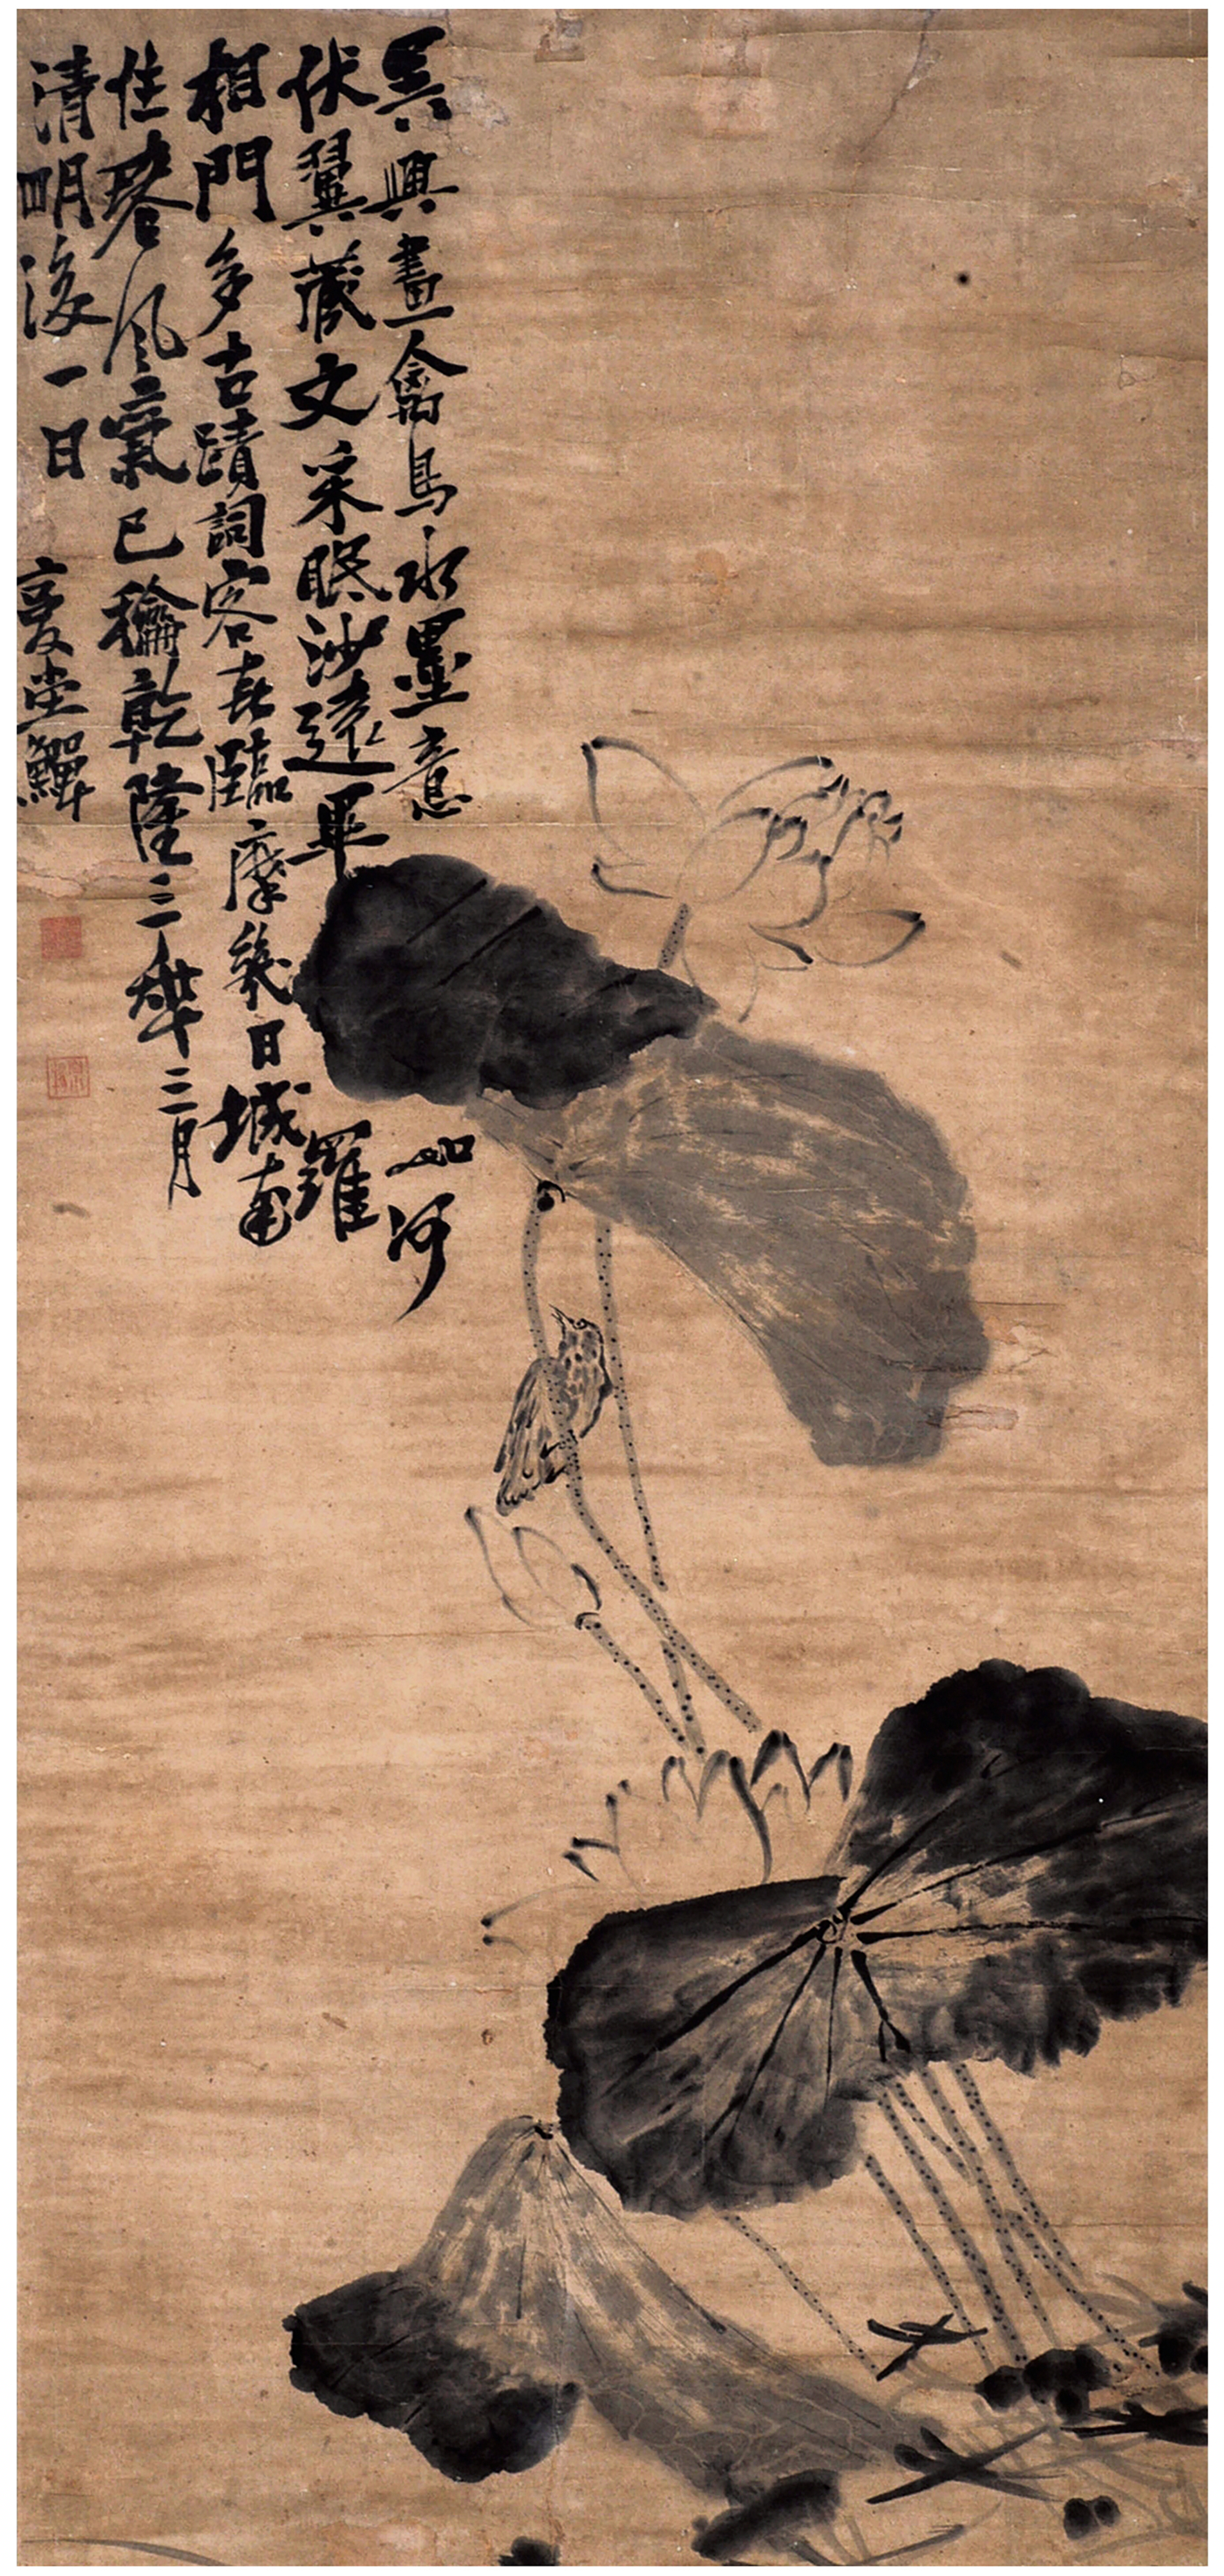 吳興畫禽鳥水墨意如何
伏翼藏文采眠沙遠畢羅
相門多古蹟詞客喜臨摩幾日城南
住春風氣已龢乾隆三年二月
清明後一日 復堂鱓